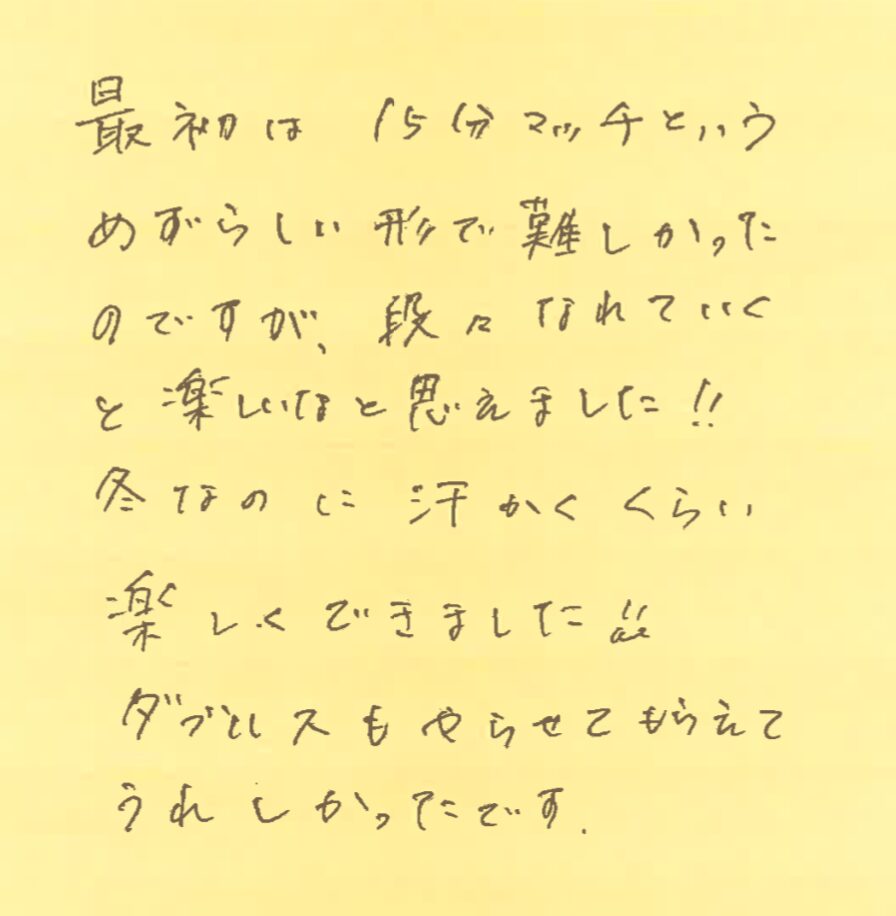 最初は 15分マッチという
めずらしい形で難しかった
のですが、段々なれていく
と楽しいなと思えました!!
冬なのに汗かくくらい
楽しくできました!!
ダブルスもやらせてもらえて
うれしかったです.